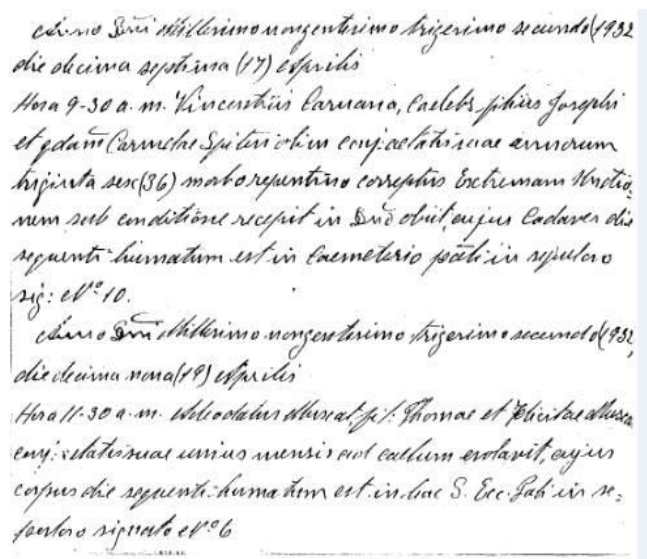 Anno Dnī Millesimo nongentesimo trigesimo secundo (1932
die decima septima (17) Aprilis
Hora 9-30 a. m. Vincentius Caruana, Caelebs filius Josephi
et qdam Carmelae Spiteri olim conj: aetatis suae annorum
triginta sex (36) morbo repentino correptus Extremam Unctio=
nem sub conditione recepit in Dnō obiit, cujus Cadaver die
sequenti humatum est in Caemeterio pāli in sepulcro
sig: Nº 10.
Anno Dnī Millesimo nongentesimo trigesimo secundo (1932,
die decima nona (19) Aprilis
Hora 11-30 a. m. Adeodatus Muscat, fil: Thomae et Felicitae Muscat
conj: aetatis suae unius mensis ad caelum evolavit, cujus
corpus die sequenti humatum est in hac S. Ecc. Pāli in se=
signato Nº 6